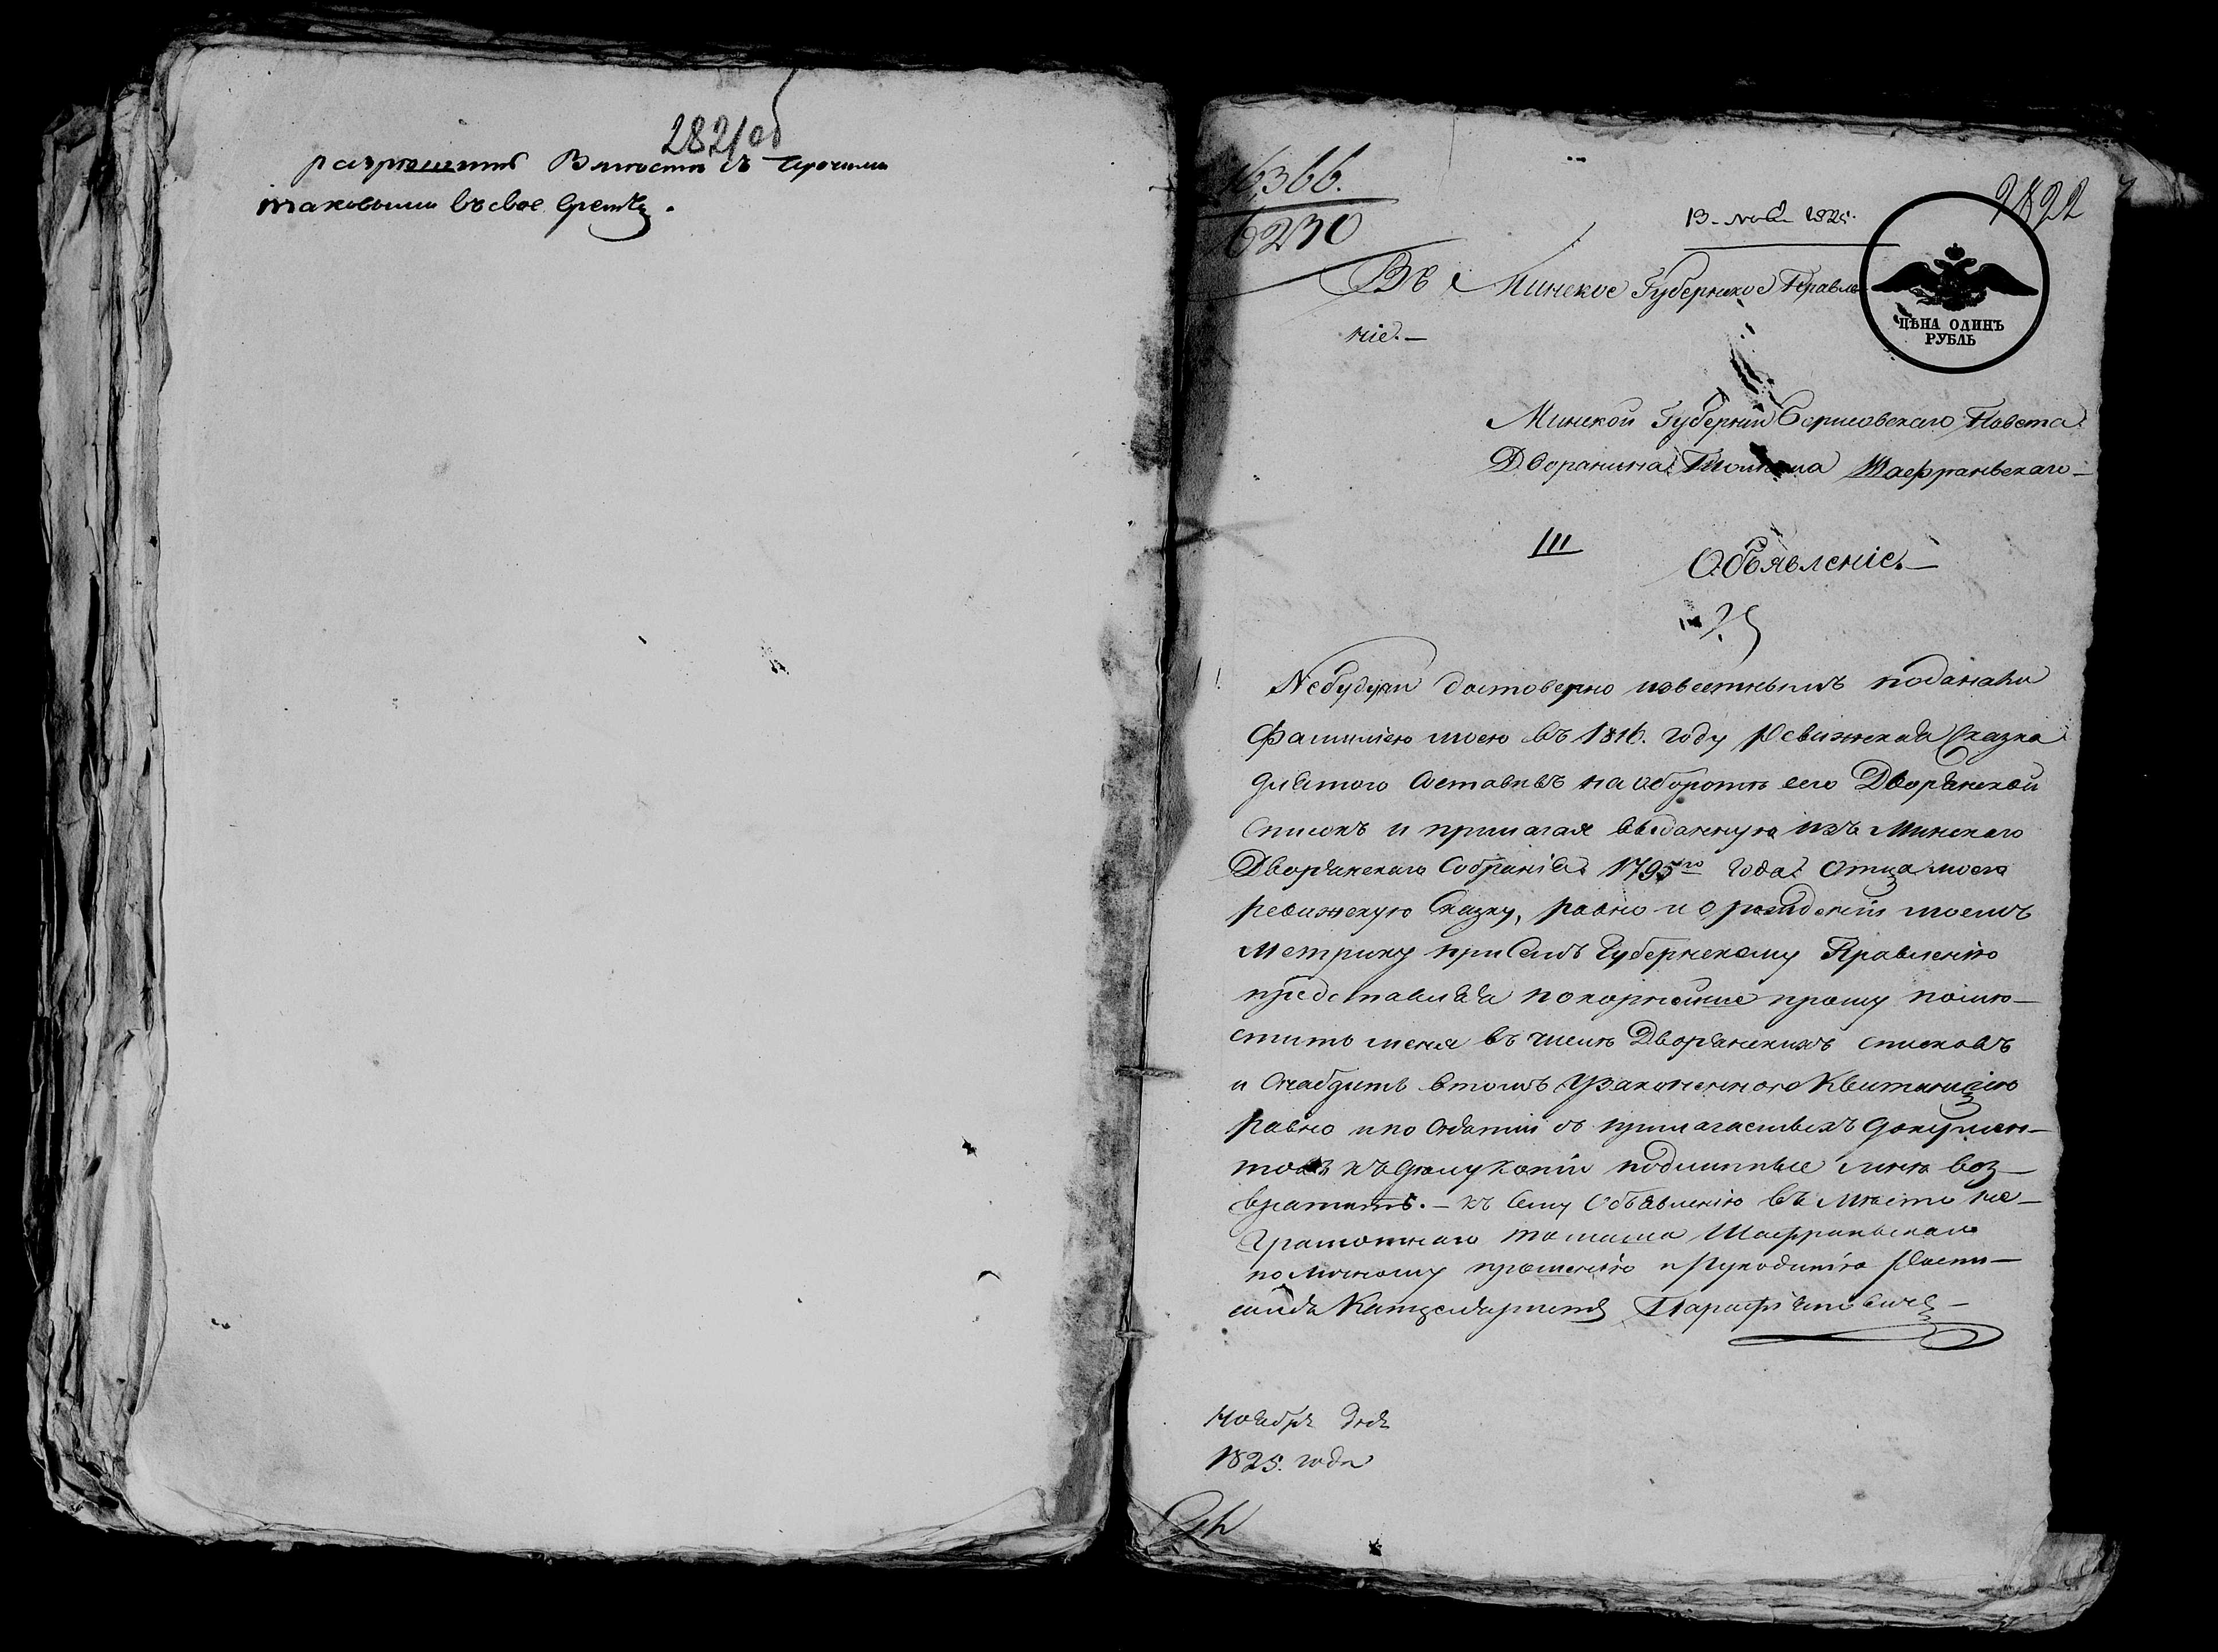 282/об
разрешить Вместе съ прочими
таковыми въ свое время.
16366.
6230
13 Нояб 1825.
Въ Минское Губернское Правле
ніе.—
ЦѢНА ОДИНЪ
РУБЛЬ
Минской Губерніи Борисовскаго Повета
Дворанина Томаша Шафраньскаго—
III
Объявленіе.—
Небудучи достоверно известнымъ подана ли
Фамиліею моею въ 1816. году Ревижская Сказка
для того составивъ на оборотъ сего Дворянской
списокъ и прилагая выданную изъ Минскаго
Дворянскаго Собранія 1795го года Отца моего
ревижскую Сказку, равно и о рождении моемъ
Метрику при семъ Губернскому Правленію
представляя покорнейше прошу поме—
стить меня въ число Дворянскихъ списковъ
и снабдить втомъ Узаконенною Квитанціею
равно и по снятии съ прилагаемыхъ докумен—
товъ къ делу копіи подлинные мне воз—
вратить.— къ сему Объявленію въ место не—
грамотнаго Томаша Шафраньскаго
по личному прошенію и рукоданію росп—
Ноября дня
1825. года